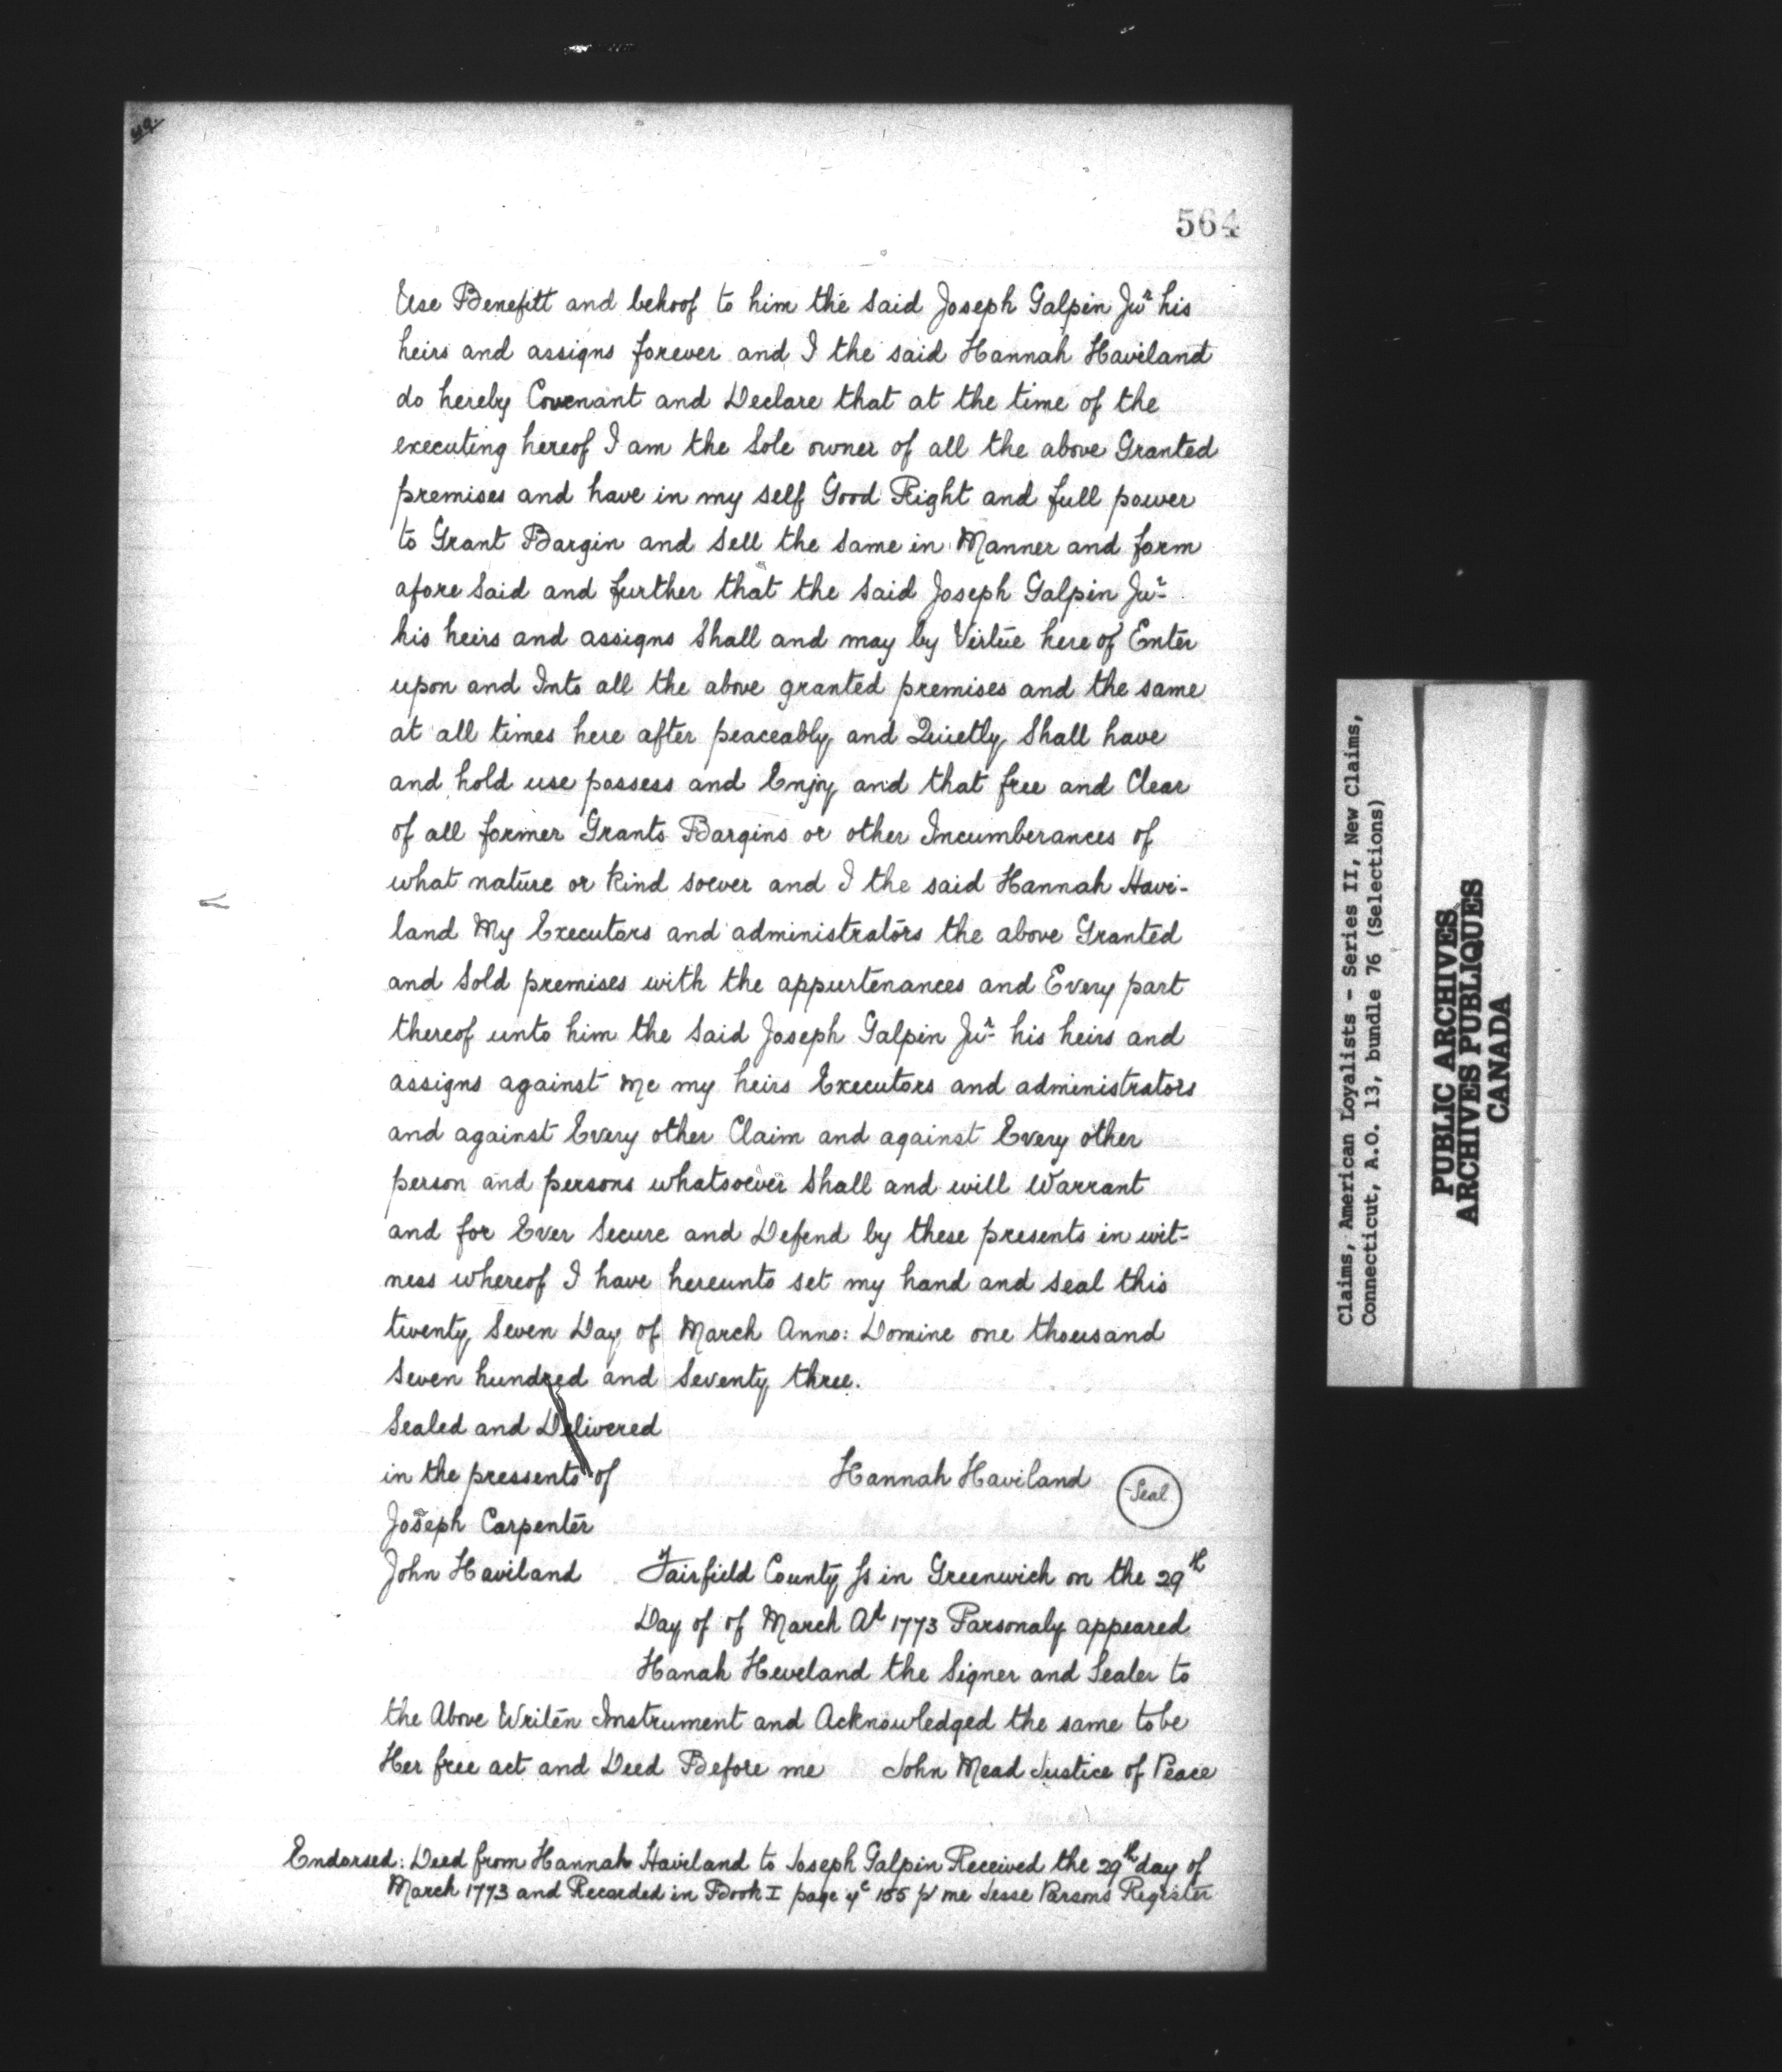 49.
564
Use Benefitt and behoof to him the said Joseph Galpin Jur his
heirs and assigns forever and I the said Hannah Haviland
do hereby Covenant and Declare that at the time of the
executing hereof I am the Sole owner of all the above Granted
premises and have in my self Good Right and full power
to Grant Bargin and Sell the Same in Manner and form
afore Said and further that the Said Joseph Galpin Jur
his heirs and assigns Shall and may by Virtue here of Enter
upon and Into all the above granted premises and the same
at all times here after peaceably and Quietly Shall have
and hold use possess and Enjoy and that free and Clear
of all former Grants Bargins or other Incumberances of
what nature or kind soever and I the said Hannah Havi-
land My Executors and administrators the above Granted
and Sold premises with the appurtenances and Every part
thereof unto him the Said Joseph Galpin Jur his heirs and
assigns against me my heirs Executors and administrators
and against Every other Claim and against Every other
person and persons whatsoever Shall and will Warrant
and for Ever Secure and Defend by these presents in wit-
ness whereof I have hereunto set my hand and seal this
twenty Seven Day of March Anno: Domine one thousand
Seven hundred and Seventy three.
Sealed and Delivered
in the pressents of
Hannah Haviland Seal
Joseph Carpenter
John Haviland Fairfield County Ss in Greenwich on the 29th
Day of of March Ad 1773 Parsonaly appeared
Hanah Heveland the Signer and Sealer to
the Above Writen Instrument and Acknowledged the same to be
Her free act and Deed Before me John Mead Justice of Peace
Endorsed: Deed from Hannah Haviland to Joseph Galpin Received the 29th day of
March 1773 and Recorded in Book I page ye 155 p me Jesse Parsons Register
Claims, American Loyalists - Series II, New Claims,
Connecticut, A.O. 13, bundle 76 (Selections)
PUBLIC ARCHIVES
ARCHIVES PUBLIQUES
CANADA